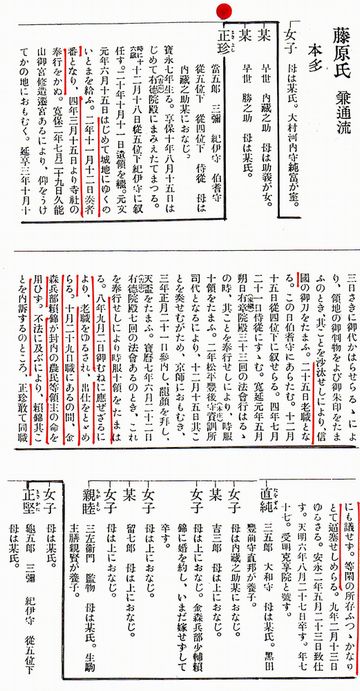 藤原氏 兼通流
本多
女子 母は某氏。大村河内守純富が室。
某 早世 內藏之助 母は助義が女。
某 早世 勝之助 母は某氏。
正珍
當五郎 三彌 紀伊守 伯耆守
從五位下 從四位下 侍從 母は
內藏之助某におなじ。
寶永七年生る。享保十年八月十五日は
じめて有德院殿にまみえたてまつる。
十二月十八日從五位下紀伊守に敍
任す。二十年十月十一日遺領を繼、
元年六月十五日はじめて城地にゆくの
いとまを給ふ。二年十一月十二日奏者
番となり、四年三月十五日より寺社の
奉行をかぬ。寬保二年七月二十九日久能
山御宮修造遷宮あるにより、仰をうけ
てかの地におもむく。延享三年十月十
三日さきに御代かはらせらるゝによ
り、領地の御判物をよび御朱印をたま
ふのとき、其ことを務めしにより、信
國の御刀をたまふ。二十五日老職とな
る。この日伯耆守にあらたむ。十二月
十五日從四位下に敍せらる。四年七月
二十一日侍從にすゝむ。寬延元年五月
朔日右德院殿三十三回の法會行はるゝ
の時、其ことを奉行せしにより、時服
十領をたまふ。二年松平豐後守資訓所
司代となるにより、十二月十五日其こ
とを奏せむがため、京師におもむき、
三年正月二十一日參內し、龍顏を拜し、
天盃をたまふ。寶曆七年六月二十二日
有德院殿七回の法會あるのとき、これ
を奉行せしにより時服十領をたまは
る。八年九月二日御むねに應ぜざるに
より、老職をゆるされ、出仕をとゞめ
らる。十月二十九日職にあるの間、金
森兵部賴錦が封內の農民等領主の命を
用ひず。不法に及ぶにより、賴錦其こ
とを內訴するのところ、正珍敢て同職
にも議せず。等閑の所存ふつゝかなり
とて逼塞せしめらる。九年二月十三日
ゆるさる。安永二年五月二十三日致仕
す。天明六年八月二十七日卒す。年七
十七。受明克享院と號す。
直純 五郎 大和守 母は某氏。黑田
豐前守直邦が養子。
女子 母は內藏之助某におなじ。
某 吉三郎 母は上におなじ。
女子 母は上におなじ。金森兵部少輔賴
錦に婚を約し、いまだ嫁せずして
卒す。
女子 母は上におなじ。
某 留七郎 母は上におなじ。
女子 母は上におなじ。
親睦 三左衞門 監物 母は某氏。生駒
主膳親賢が養子。
女子 母は某氏。
正堅 龜五郎 三彌 紀伊守 從五位下
母は某氏。